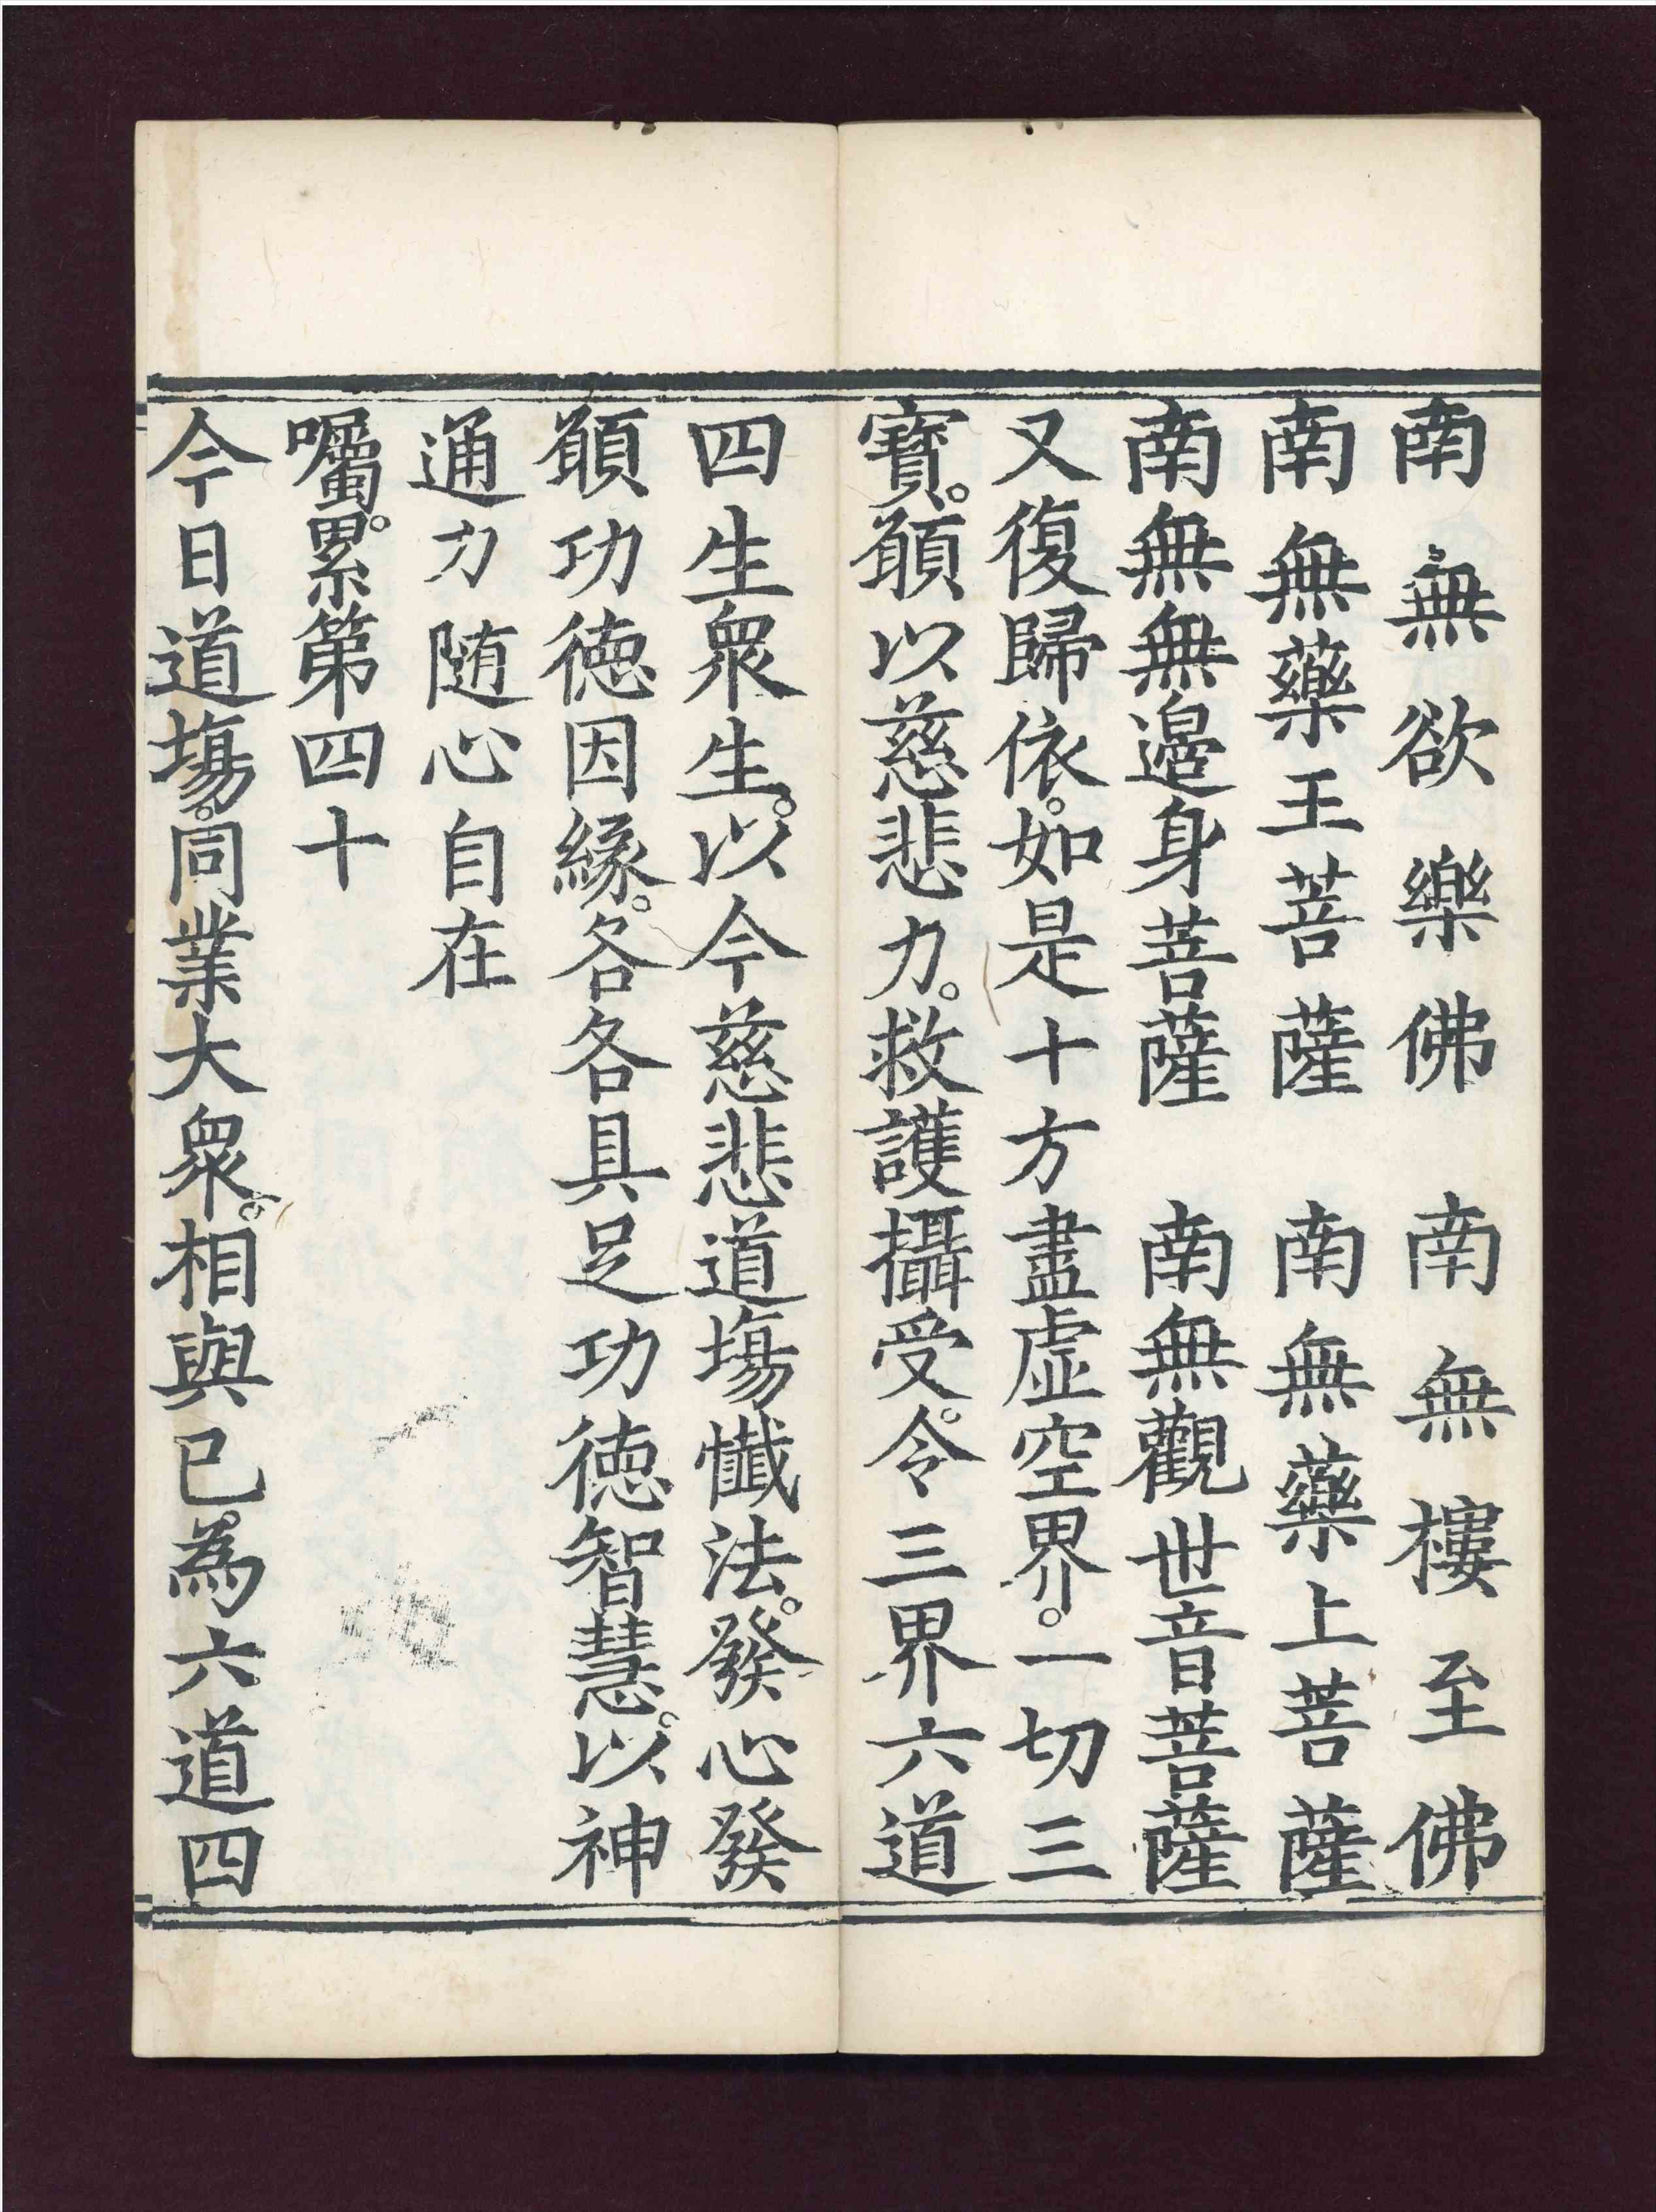 南無欲樂佛　南無樓至佛
南無藥王菩薩　南無藥上菩薩
南無無邉身菩薩　南無觀世音菩薩
又復歸依。如是十方盡虛空界。一切三
寶。願以慈悲力。救護攝受。令三界六道
四生衆生。以今慈悲道塲懺法。發心發
願功德因緣。各各具足功德智慧。以神
通力随心自在
囑。累第四十
今日道塲。同業大衆。相與已。為六道四